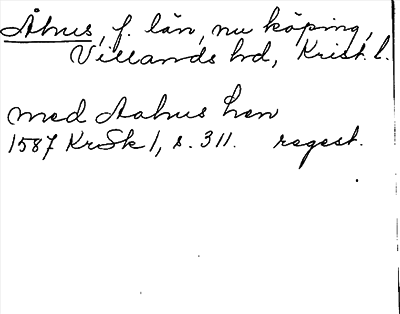 Åhus, f. län, nu köping,
Villands hd, Krist. l.
med Aahus len
1587 KrSk 1, s. 311. regest.